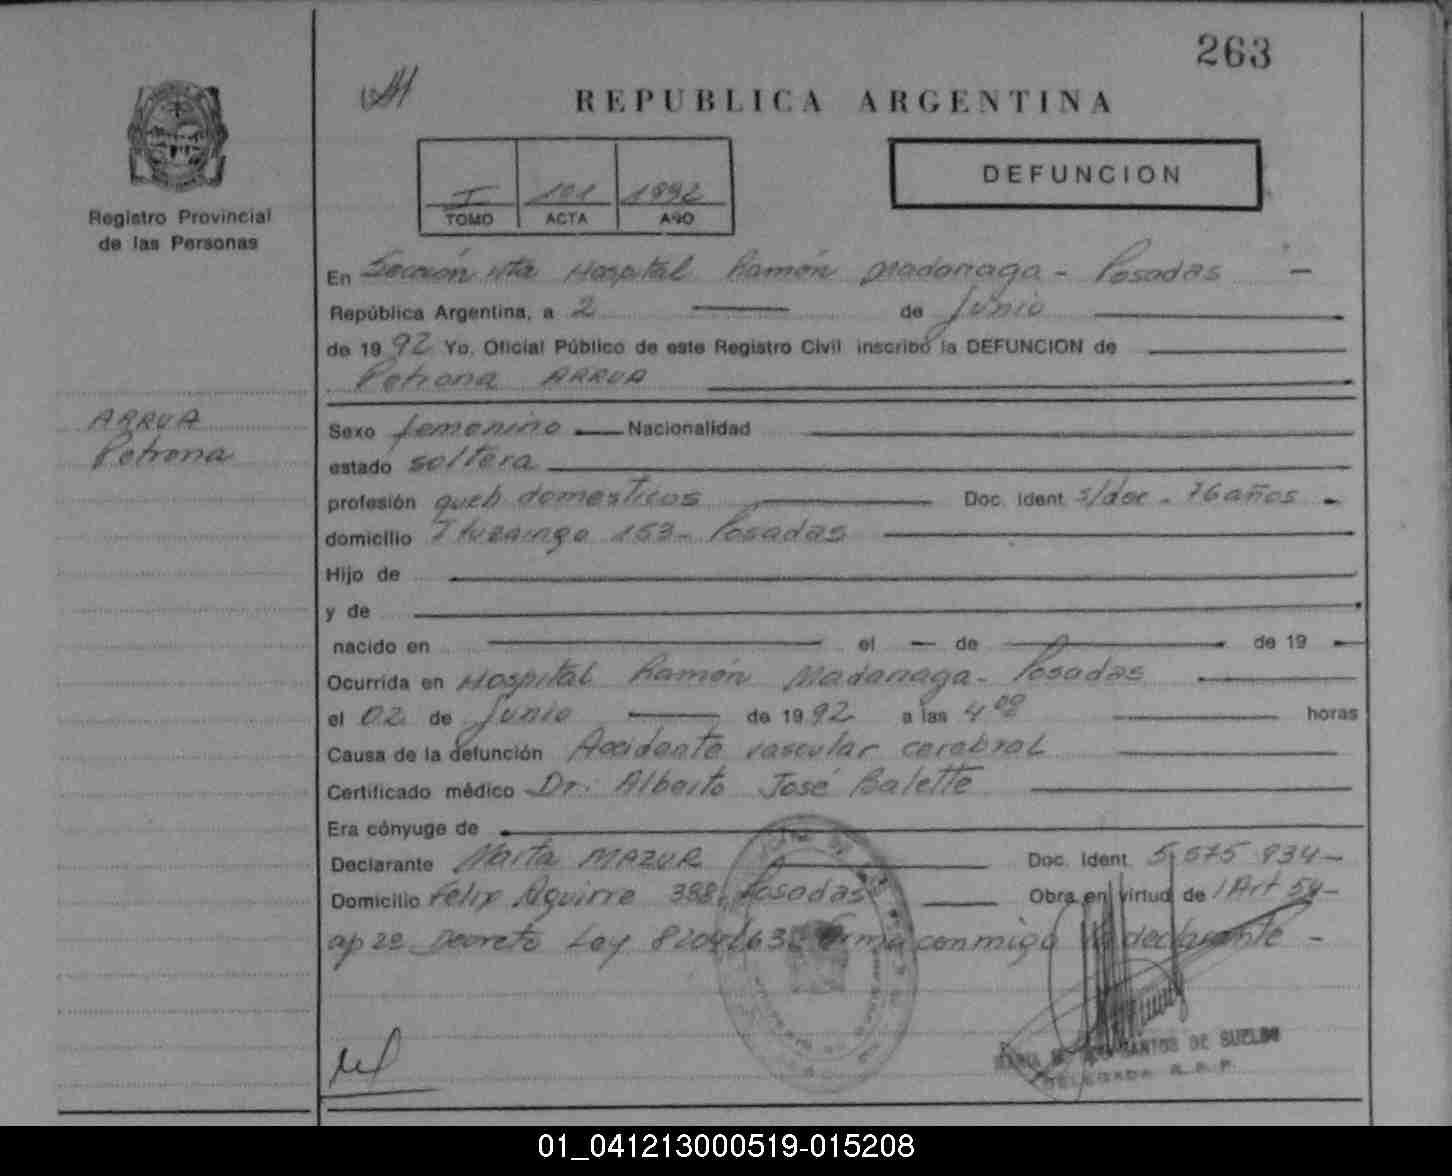 263
REPUBLICA ARGENTINA
DEFUNCION
I 101 1992
TOMO ACTA AÑO
Registro Provincial
de las Personas
En Sección 4ta Hospital Ramón Madariaga - Posadas -
República Argentina, a 2 de Junio
de 1992 Yo, Oficial Público de este Registro Civil inscribo la DEFUNCION de
Petrona ARRUA
ARRUA
Petrona
Sexo femenino Nacionalidad
estado soltera
profesión queh domesticos Doc. Ident. s/doc - 76 años -
domicilio Ituzaingo 153 - Posadas
Hijo de
y de
nacido en el - de de 19 -
Ocurrida en Hospital Ramón Madariaga - Posadas
el 02 de Junio de 1992 a las 4 horas
Causa de la defunción Accidente vascular cerebral
Certificado médico Dr. Alberto José Balette
Era cónyuge de
Declarante Marta MAZUR Doc. Ident. 5.575.934 -
Domicilio Felix Aguirre 388, Posadas Obra en virtud de Art 54 -
ap 2º Decreto Ley 8204/63 firma conmigo la declarante -
SANTOS DE SUELDO
DELEGADA R.P.P.
01_041213000519-015208